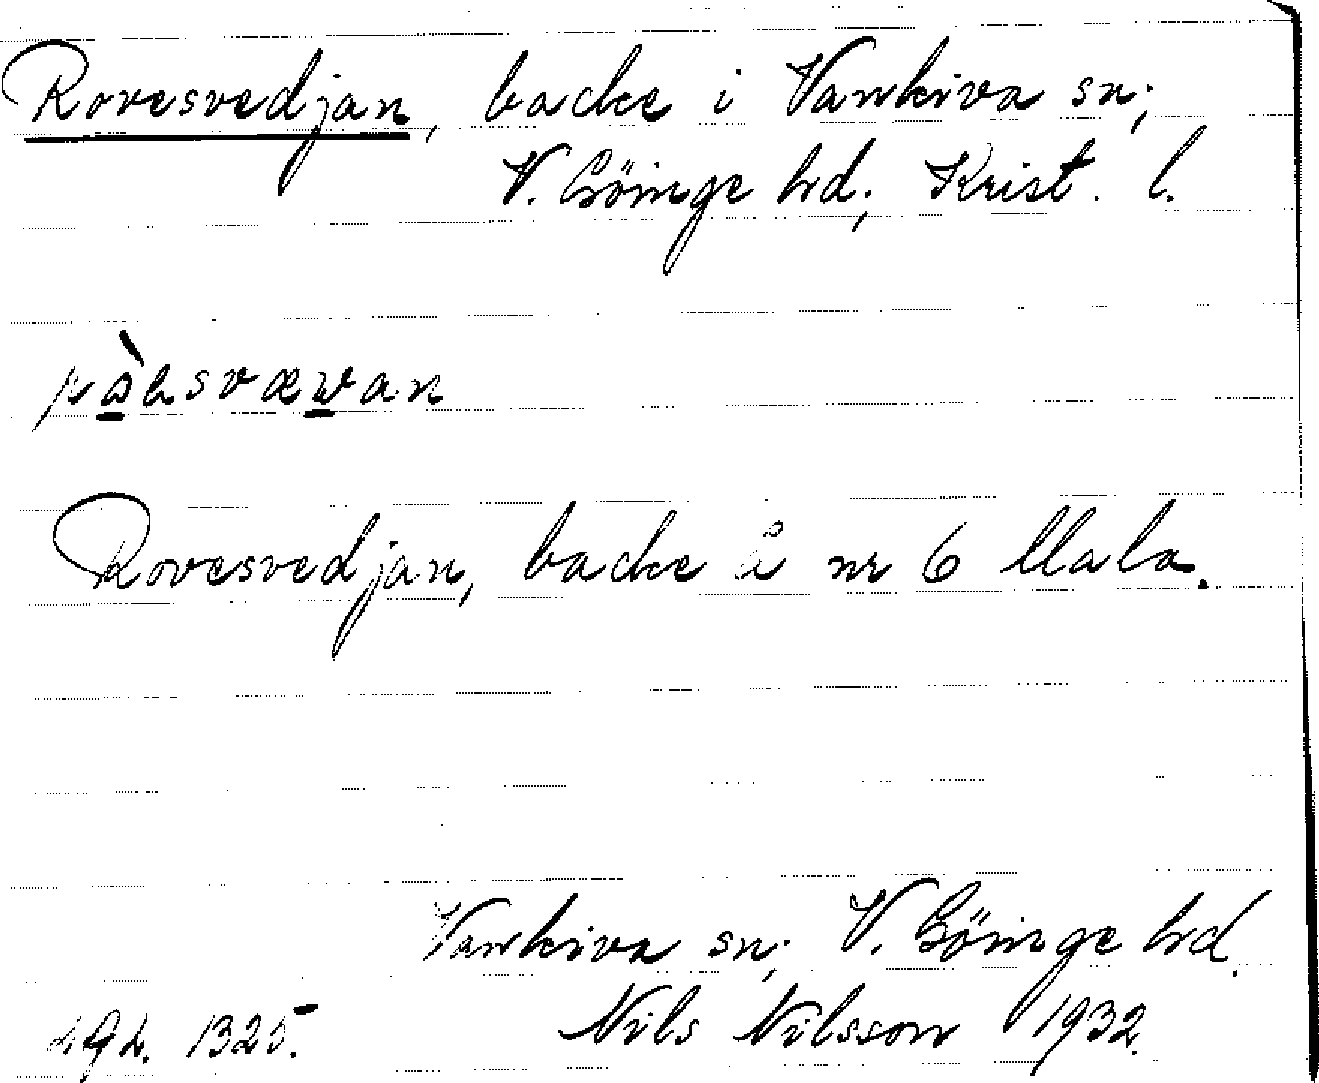 Rovesvedjan, backe i Vankiva sn;
V. Göinge hd; Krist. l.
Rovesvedjan, backe å nr 6 Mala.
Vankiva sn; V. Göinge hd.
1325. Nils Nilsson 1932.